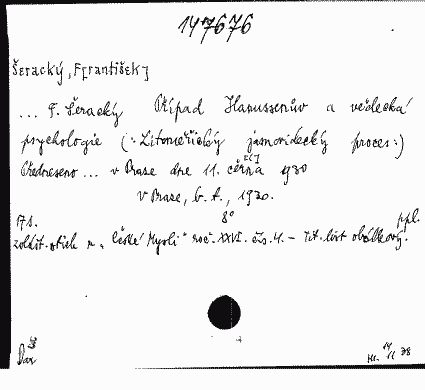 147676
Šeracký, F[rantišek]
... F. Šeracký Případ Hanussenův a vědecká
psychologie (: Litoměřický jasnovidecký proces :)
Předneseno ... v Praze dne 11. června 1930
v Praze, b. t., 1930.
17 s. 8° ppl.
zvlášt. otisk z „České Mysli" roč. XXVI. čís. 4. – Tit. list obálkový.
Dar